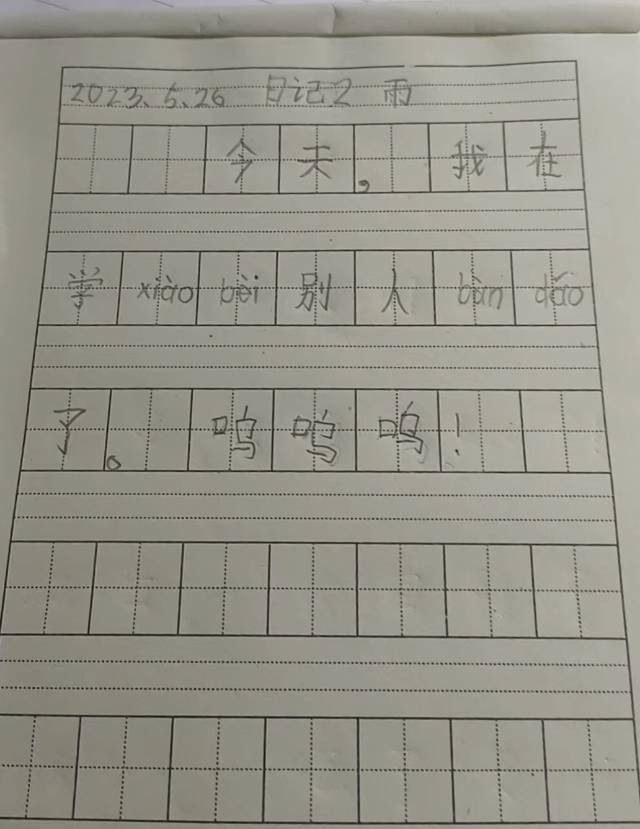 2023、5、26 日记2 雨
今天，我在
学xiào bèi别人bàn dǎo
了。呜呜呜！